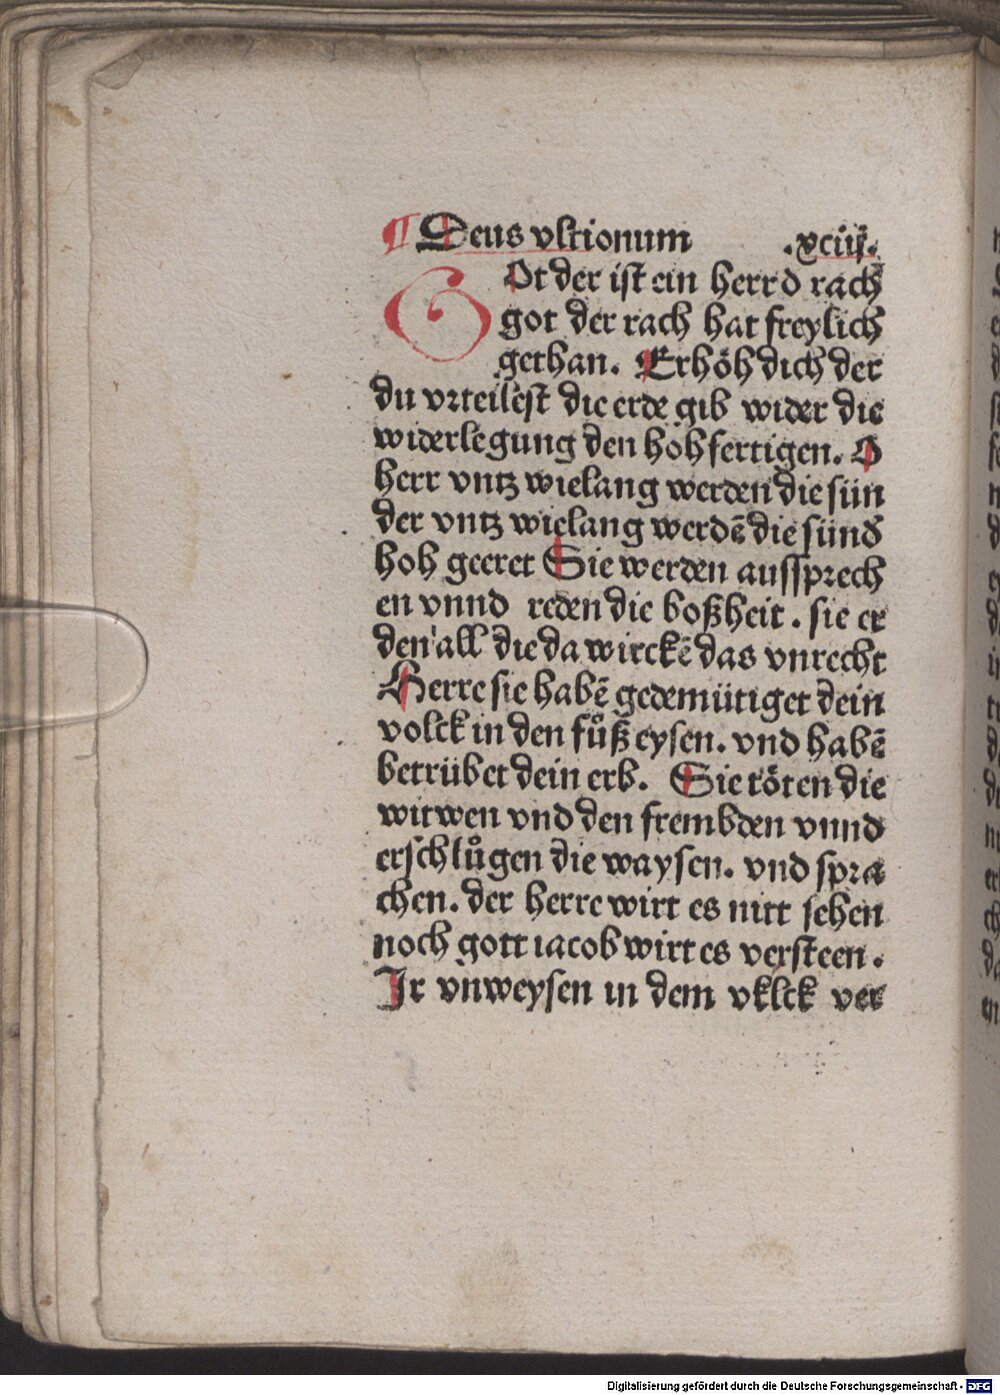 ¶ Deus vltionum .xciij.
GOt der ist ein herr d rach
got der rach hat freylich
gethan. Erhöh dich der
du vrteilest die erde gib wider die
widerlegung den hohfertigen. O
herr vntz wielang werden die sün
der vntz wielang werdē die sünd
hoh geeret Sie werden aussprech
en vnnd reden die boßheit. sie er
den all die da wirckē das vnrecht
Herre sie habē gedemütiget dein
volck in den fůß eysen. vnd habē
betrübet dein erb. Sie töten die
witwen vnd den frembden vnnd
erschlůgen die waysen. vnd spra
chen. der herre wirt es nitt sehen
noch gott iacob wirt es versteen.
Ir vnweysen in dem vklck ver
Digitalisierung gefördert durch die Deutsche Forschungsgemeinschaft - DFG